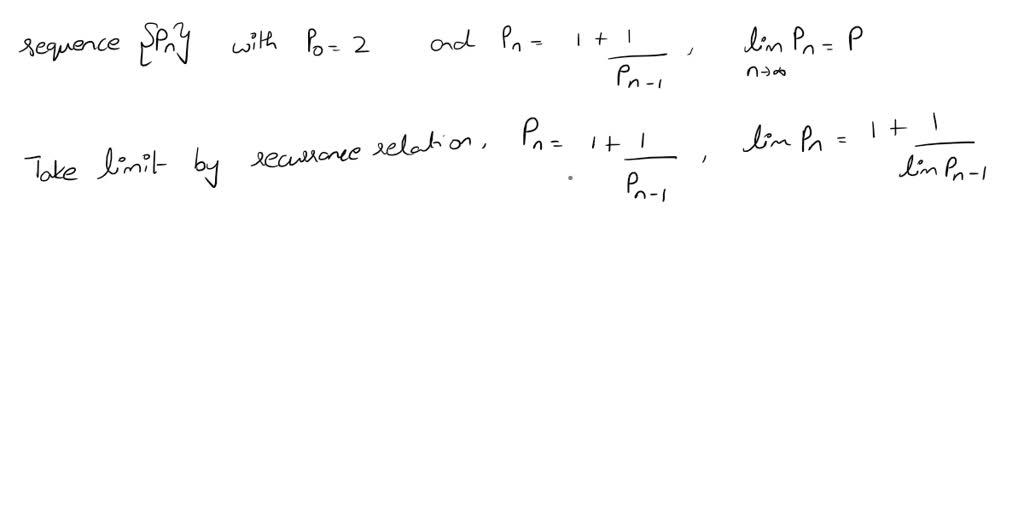 sequence {Pn} with P0 = 2 and Pn = 1 + 1/Pn-1 , lim n→∞ Pn = P
Take limit by recurrance relation, Pn = 1 + 1/Pn-1 , lim Pn = 1 + 1/lim Pn-1